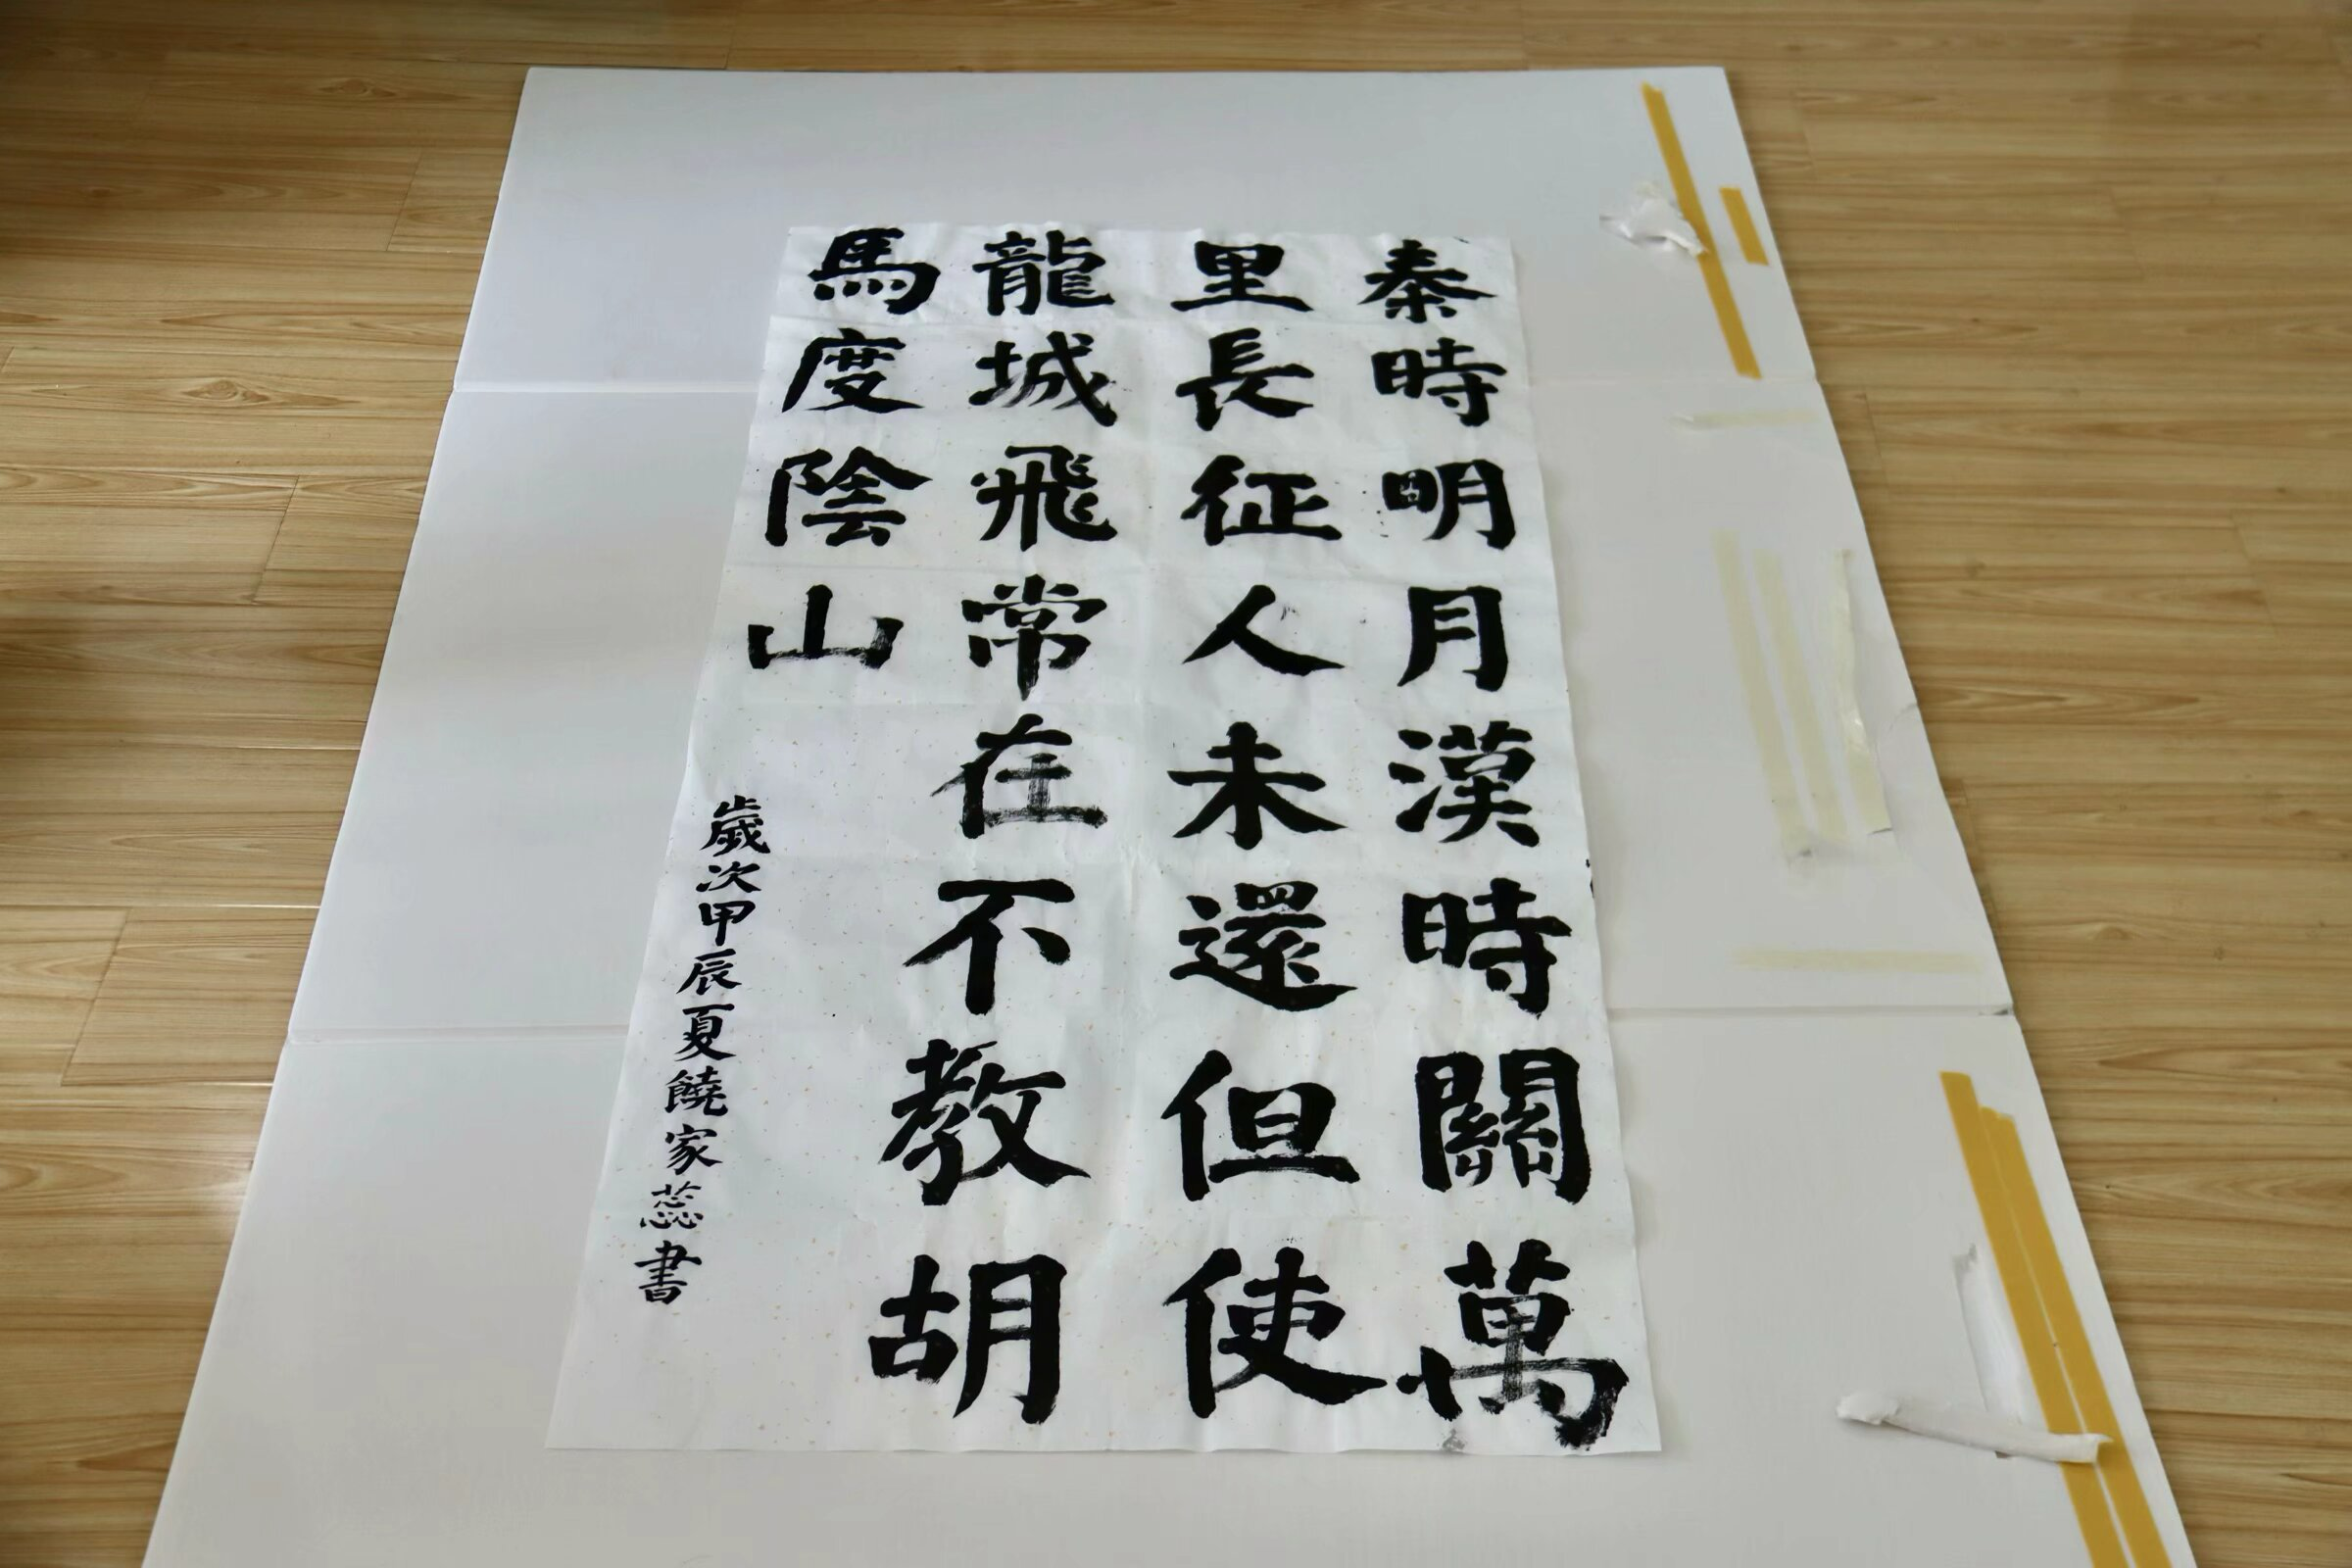 秦時明月漢時關萬
里長征人未還但使
龍城飛常在不教胡
馬度陰山
歲次甲辰夏饒家蕊書